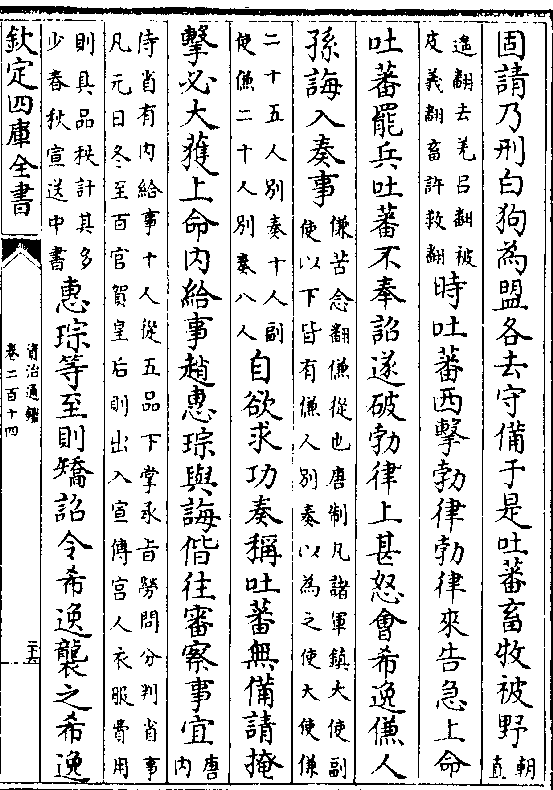 固請乃刑白狗為盟各去守備于是吐蕃畜牧被野
朝
直
遙翻去羌呂翻被
皮義翻畜許救翻
時吐蕃西擊勃律勃律來告急上命
吐蕃罷兵吐蕃不奉詔遂破勃律上甚怒會希逸傔人
孫誨入奏事
傔苦念翻傔從也唐制凡諸軍鎮大使副
使以下皆有傔人別奏以為之使大使傔
二十五人別奏十人副
使傔二十人別奏八人
自欲求功奏稱吐蕃無備請掩
擊必大獲上命內給事趙惠琮與誨偕往審察事宜
唐
內
侍省有內給事十人從五品下掌承旨勞問分判省事
凡元日冬至百官賀皇后則出入宣傳宮人衣服費用
則具品秩計其多
少春秋宣送中書
惠琮等至則矯詔令希逸襲之希逸
欽定四庫全書
資治通鑑
卷二百十四